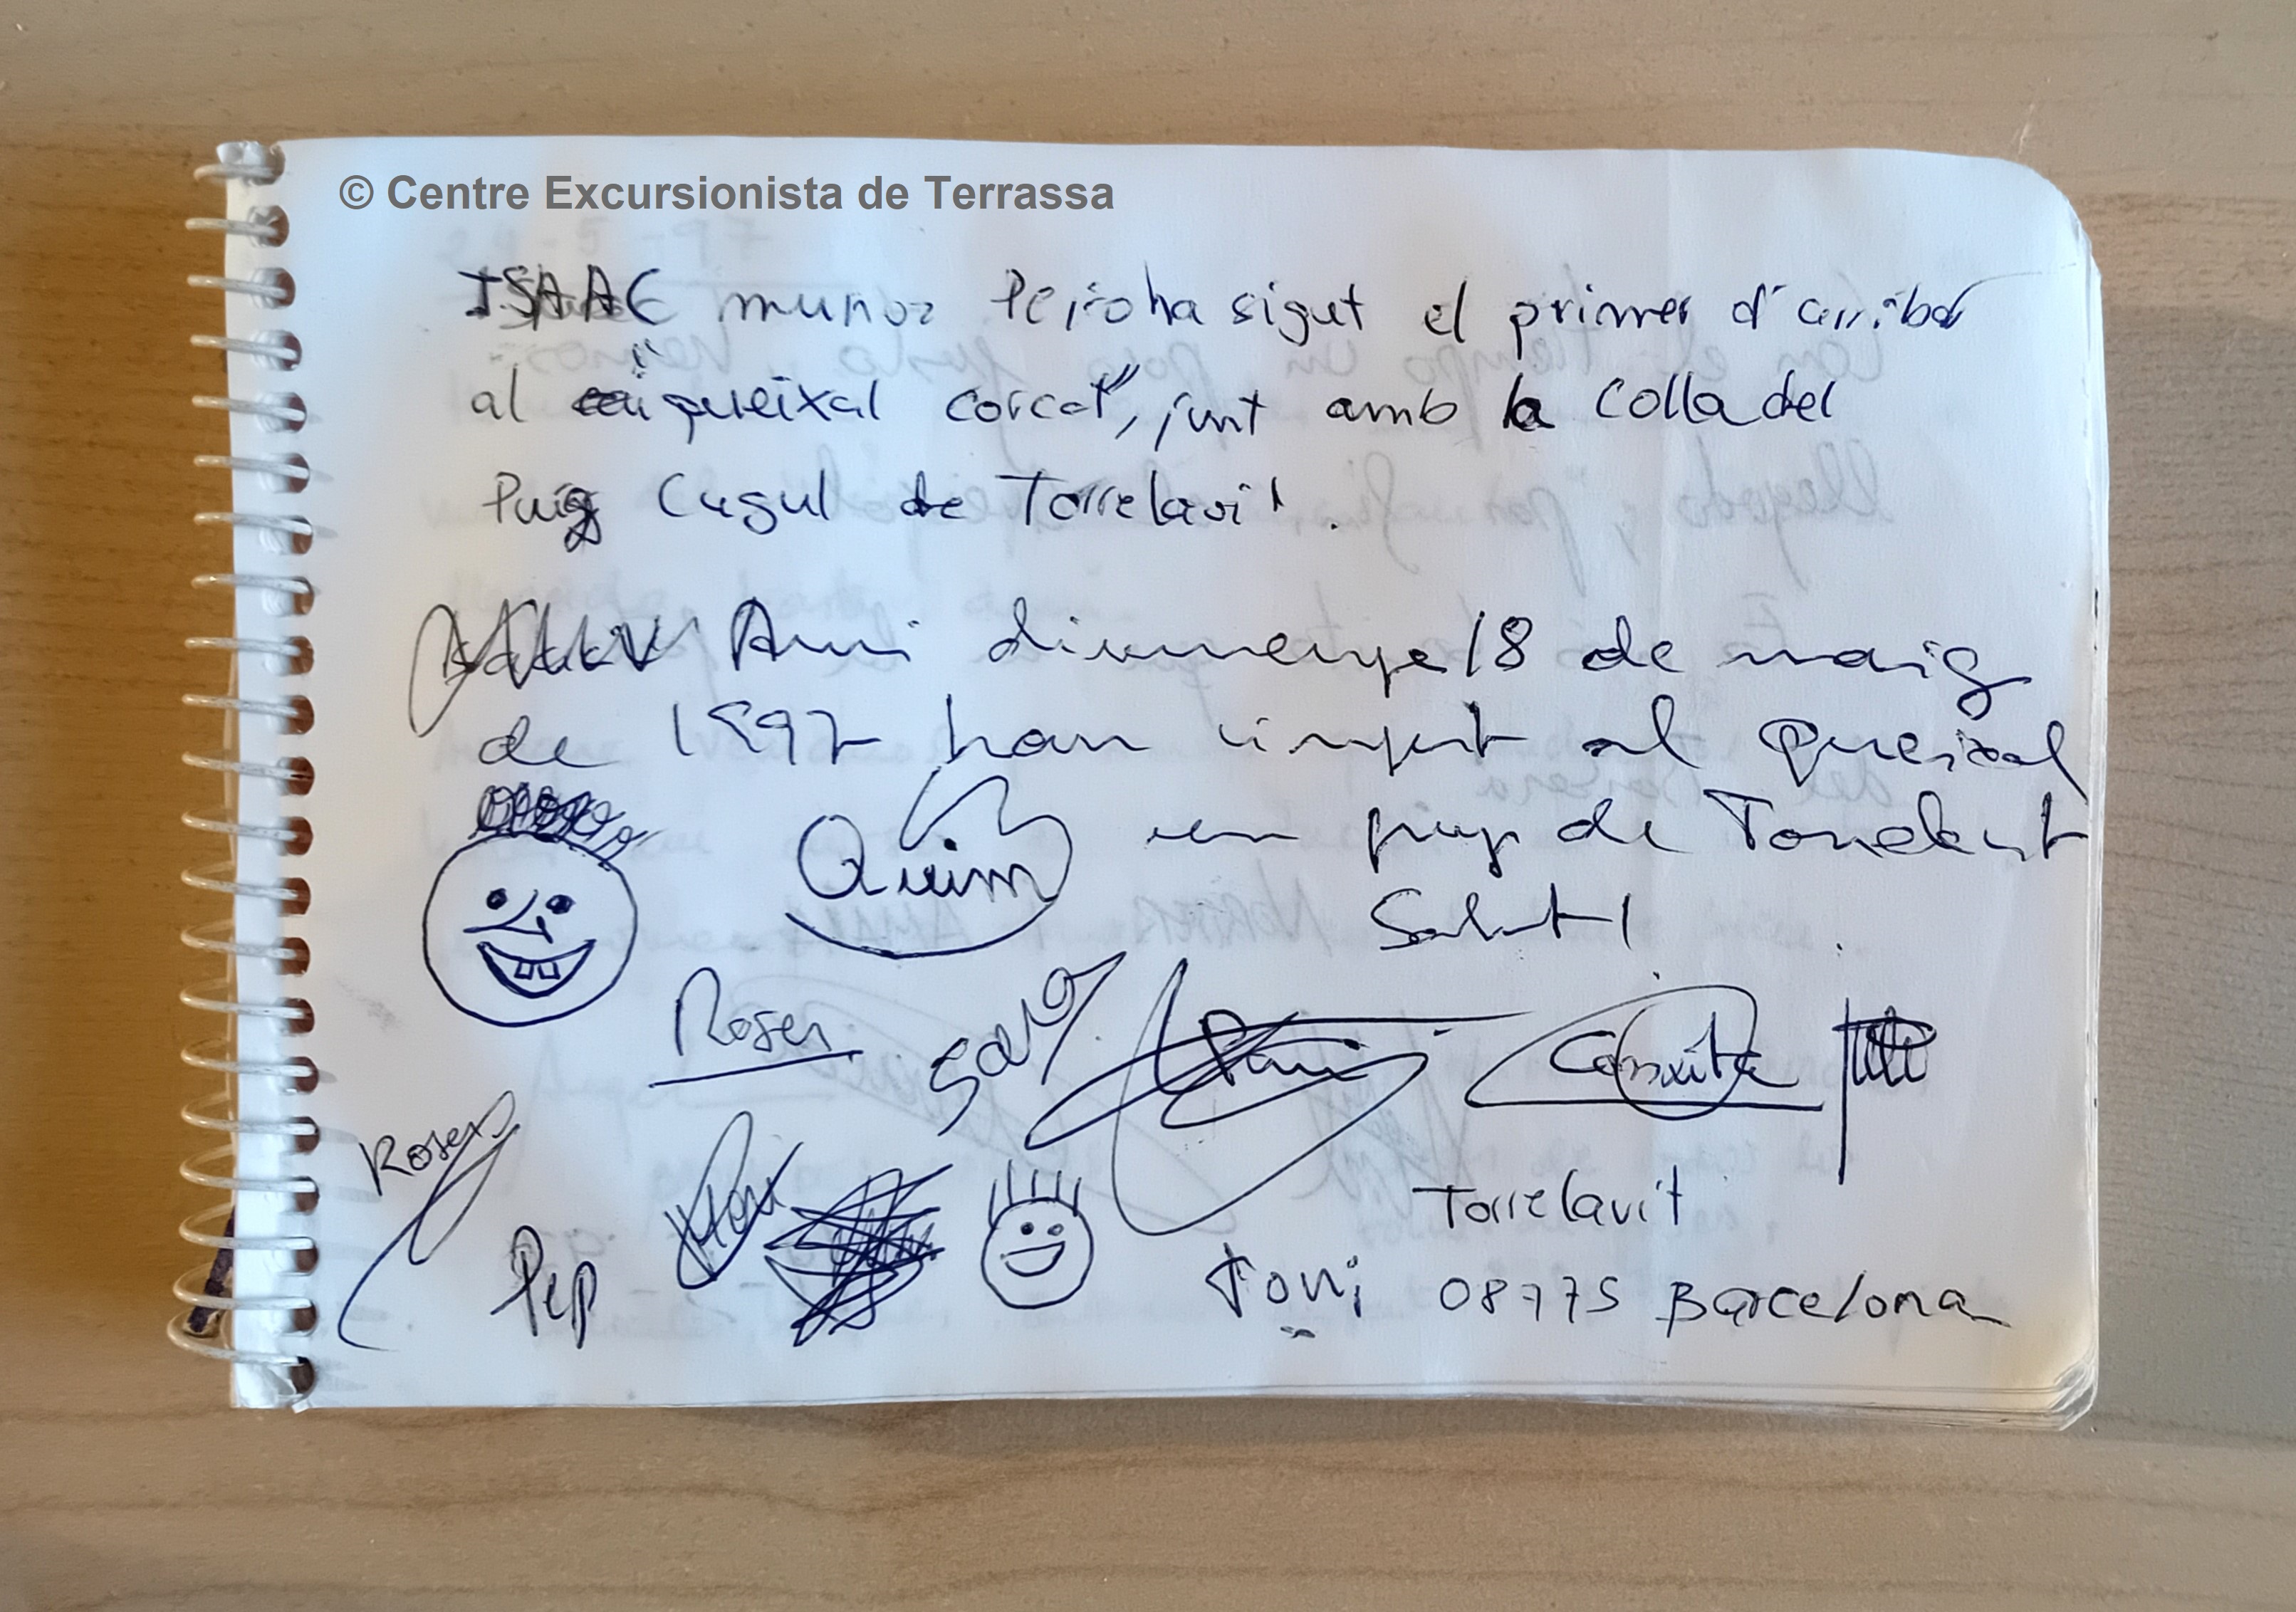 © Centre Excursionista de Terrassa
ISAAC munoz Peiro ha sigut el primer d'arribar
al "queixal corcat", junt amb la Colla del
Puig Cugul de Torrelavit.
Avui diumenge 18 de maig
de 1997 han vingut al Queixal
un grup de Torrelavit
Salut!
Quim
Roser
Sara
Conxita
Roser
Pep
Toni
Torrelavit
08775 Barcelona